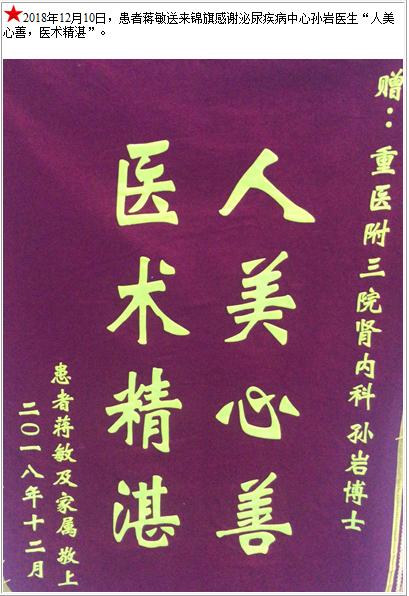 ★2018年12月10日，患者蒋敏送来锦旗感谢泌尿疾病中心孙岩医生“人美
心善，医术精湛”。
赠：重医附三院肾内科孙岩博士
人美心善
医术精湛
患者蒋敏及家属 敬上
二〇一八年十二月